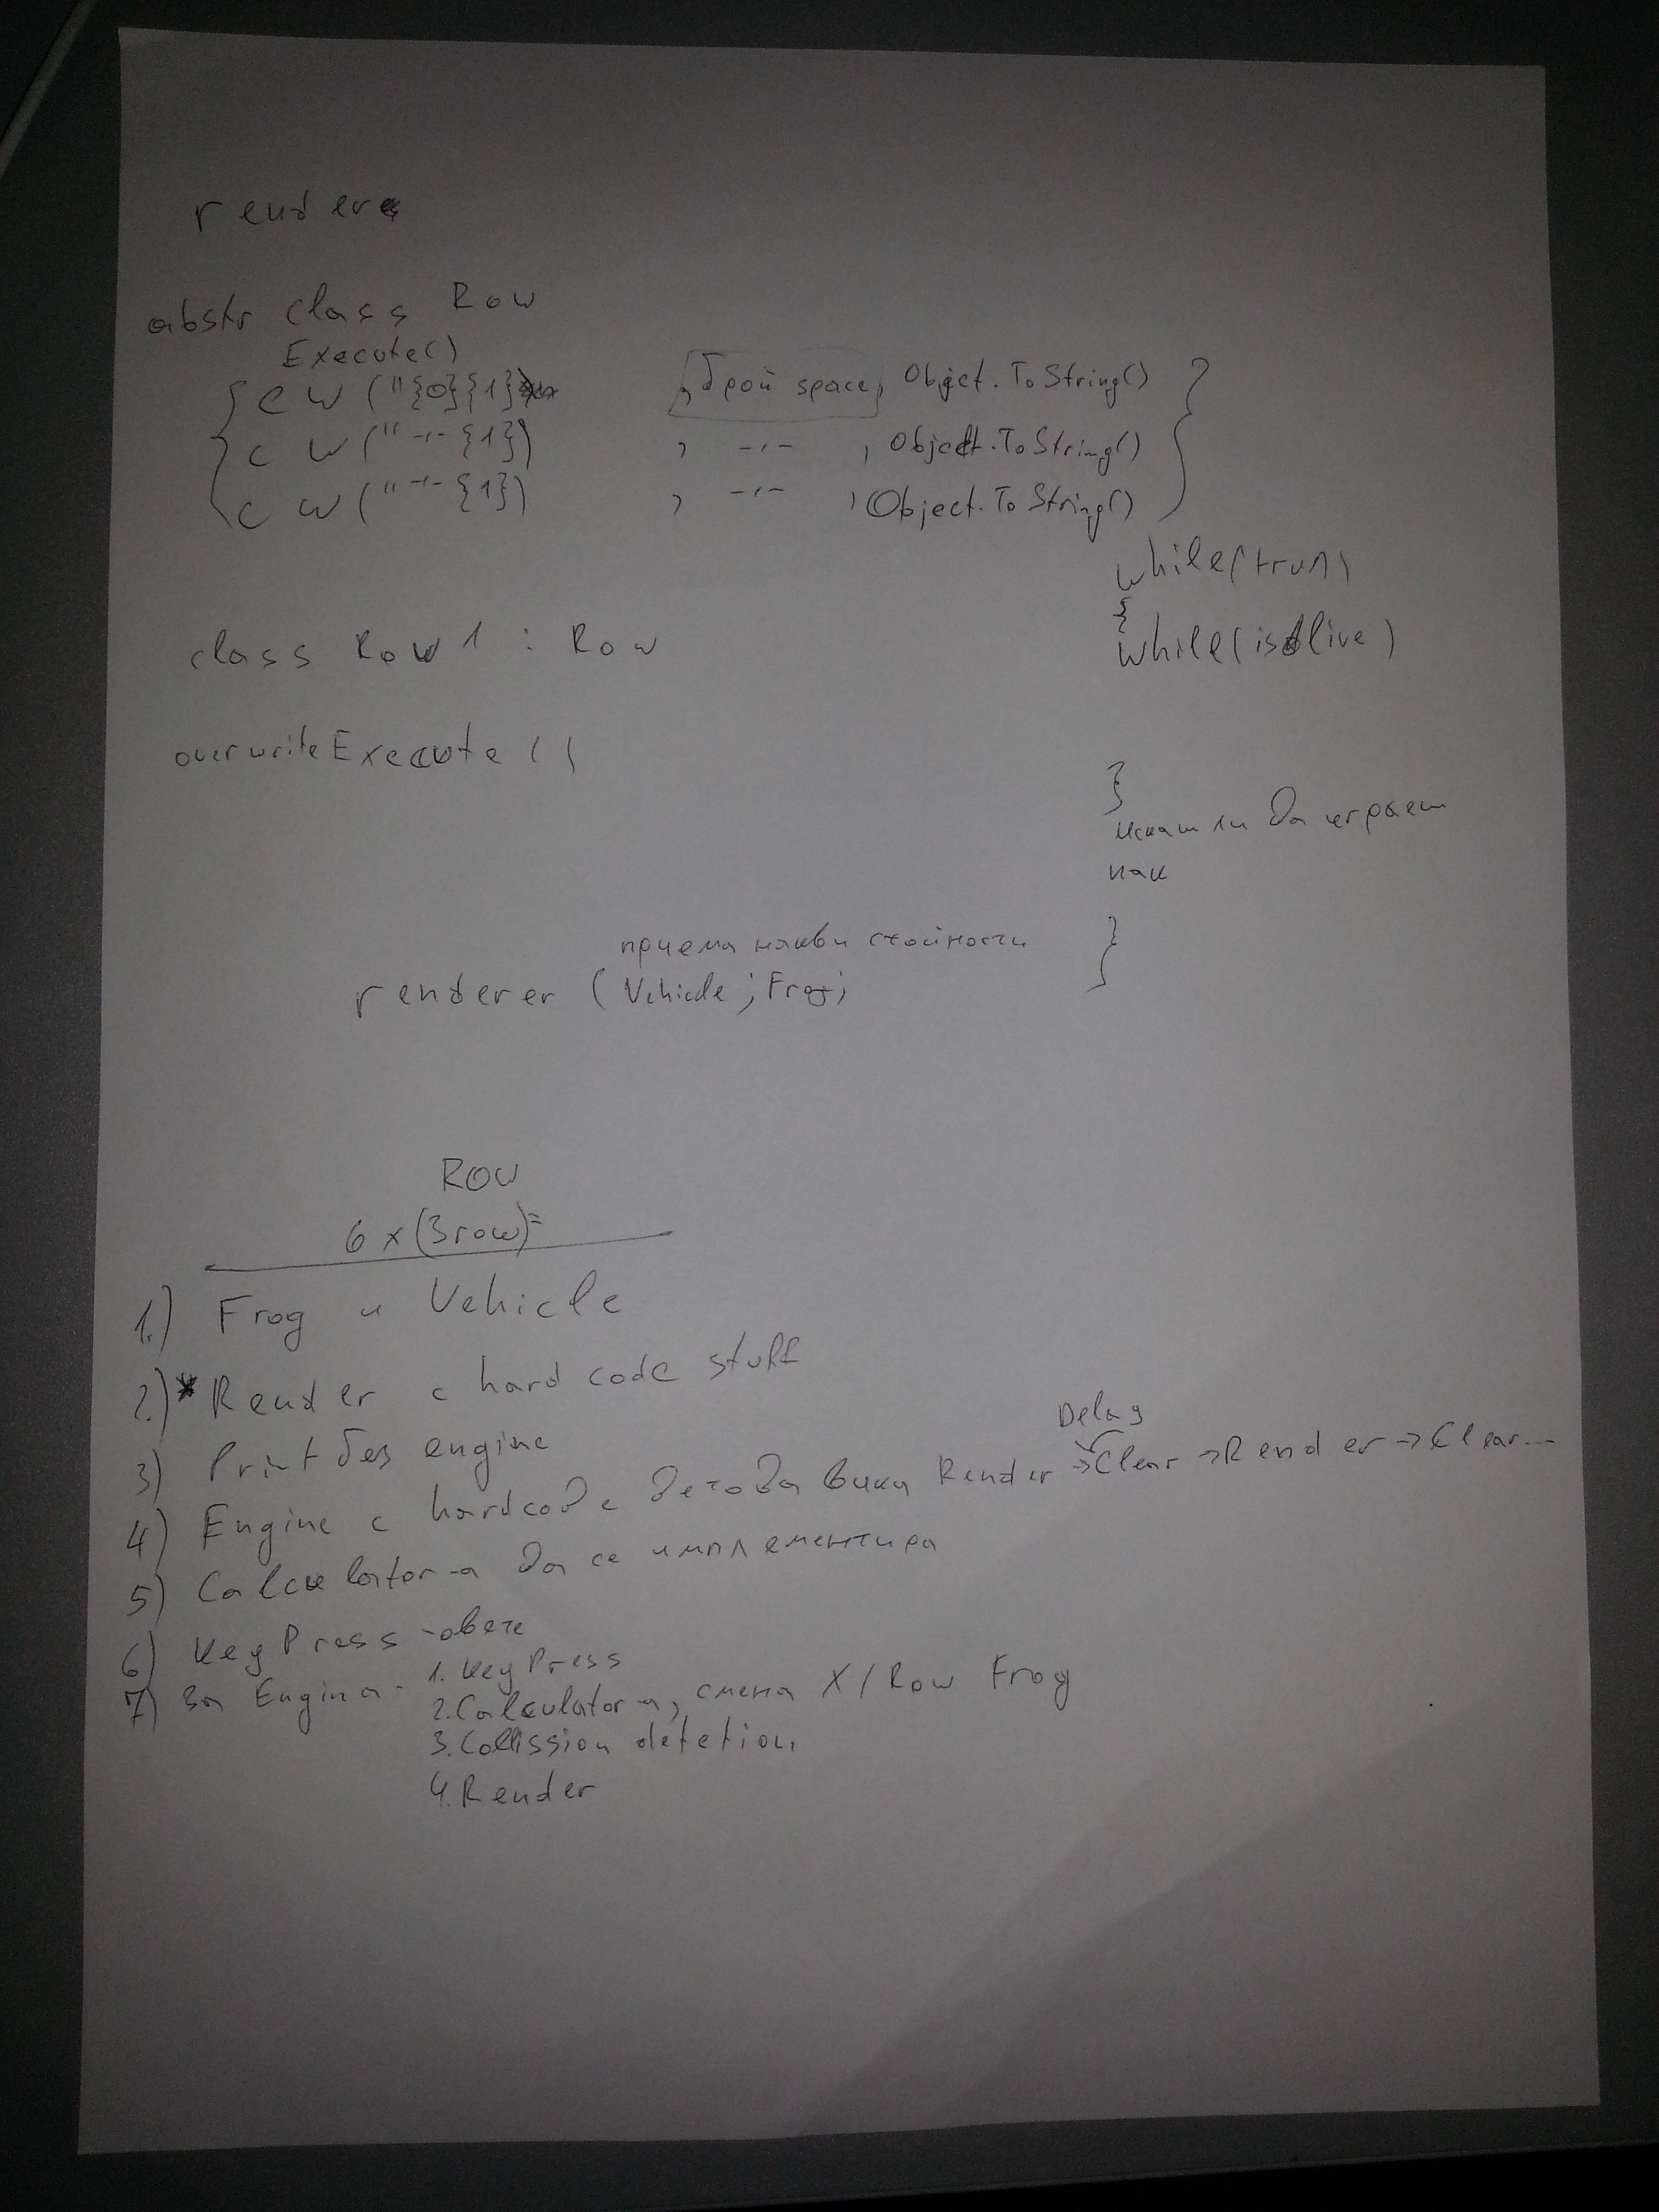 renderer
abstr class Row
Execute()
{ CW("{0}{1} , брой space, Object.ToString() }
c w("-"-{1}) , -"- , Object.ToString()
c w("-"-{1}) , -"- , Object.ToString()
while(tru)
{
while(isAlive)
class Row1 : Row
overwriteExecute()
}
искаш ли да играеш
пак
}
приема някви стойности
renderer (Vehicle; Frog;
ROW
6 x (3row)=
1.) Frog и Vehicle
2.)* Render с hard code stuff
3) Print без engine
Delay
4) Engine с hardcode дето да вика Render → Clear → Render → Clear...
5) Calculator-a да се имплементира
6) KeyPress-овете
7) За Engina - 1. KeyPress
2. Calculator-a, смена X/Row Frog
3. Collission detetion
4. Render